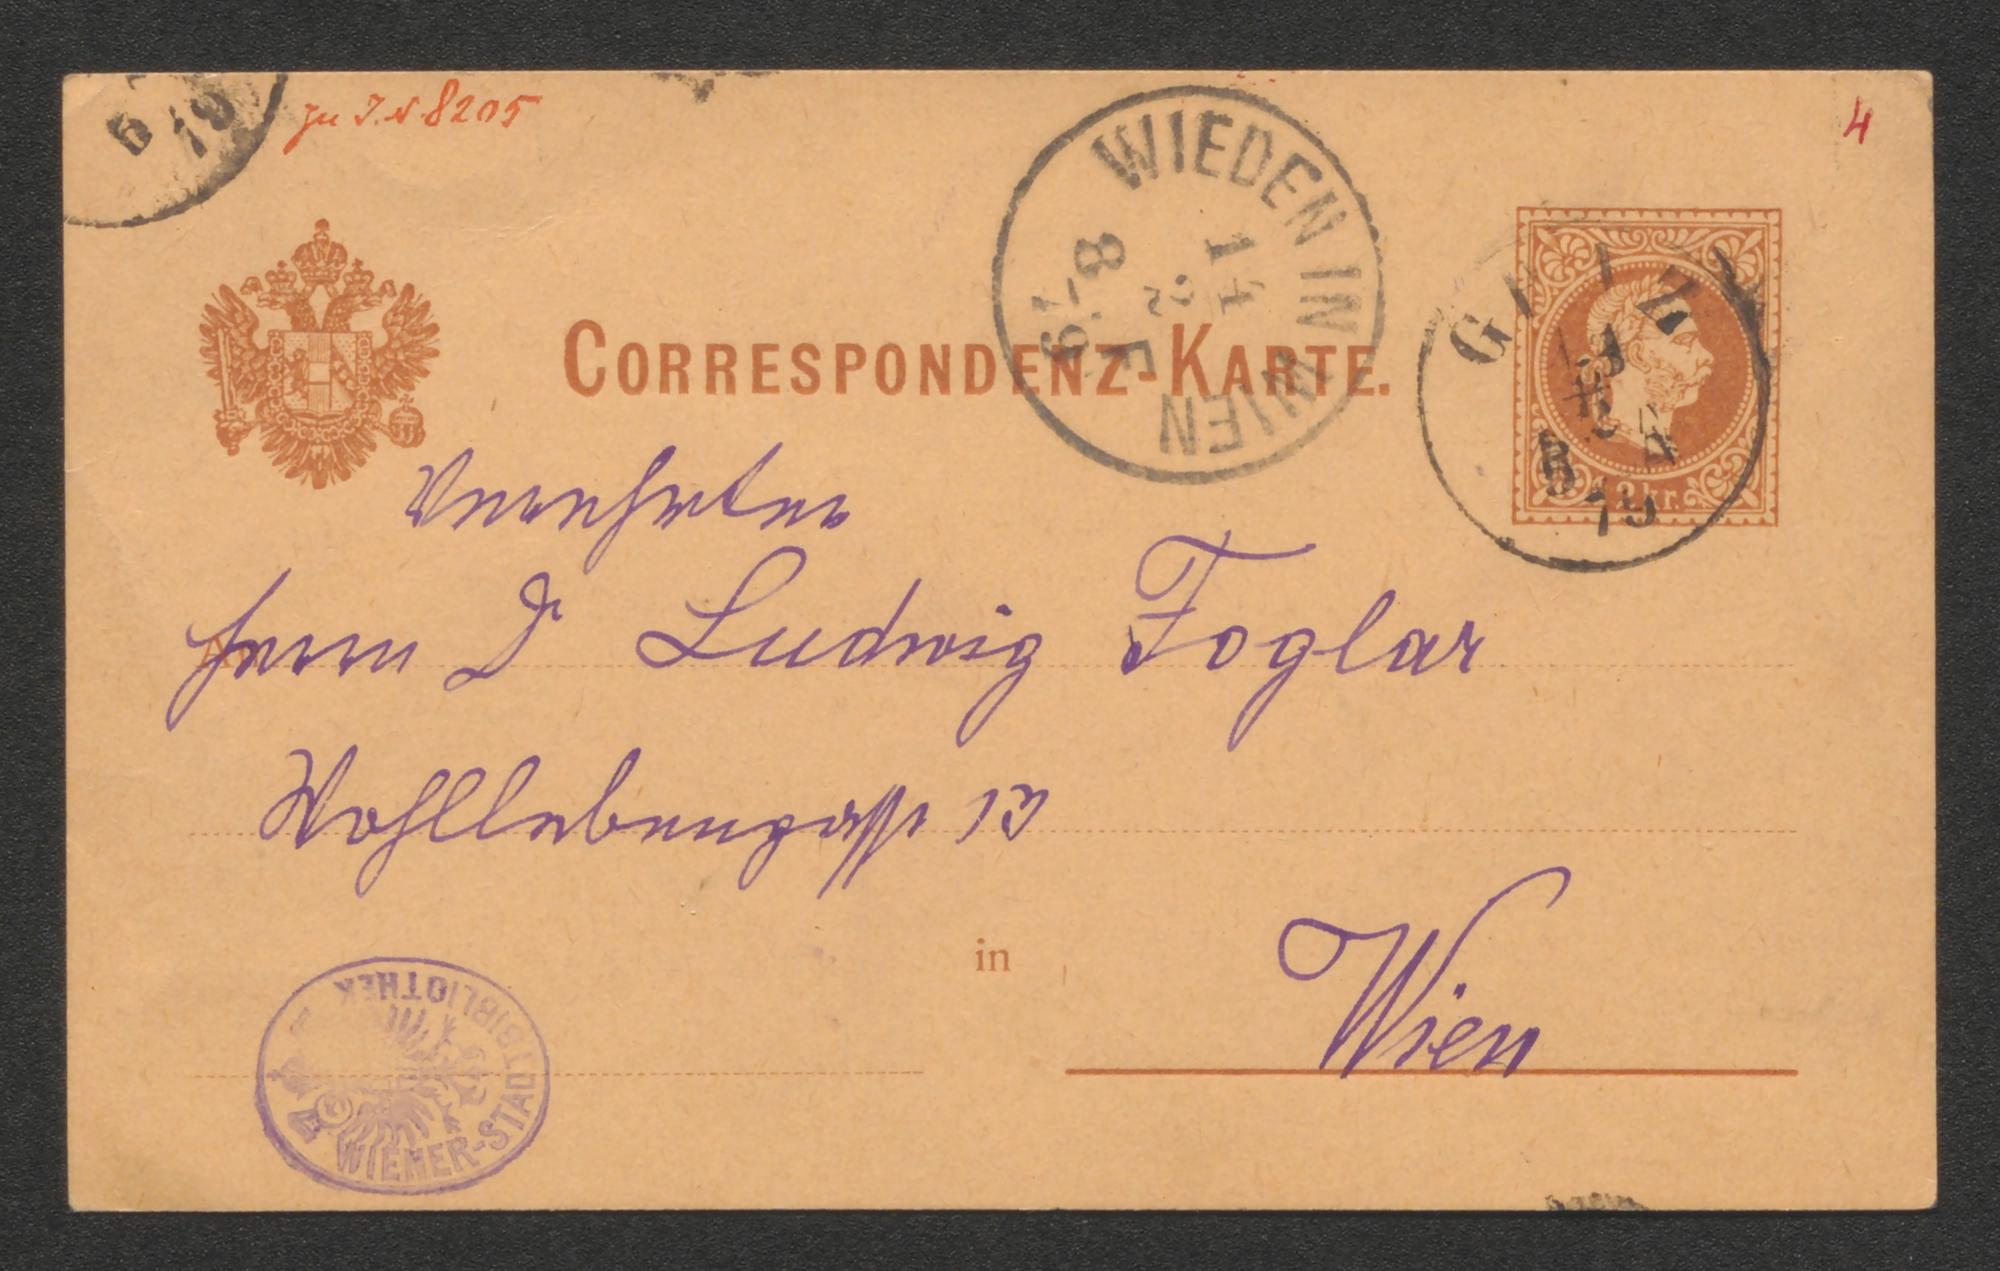 6
79
zu I.N. 8205
4
WIEDEN IN WIEN
14
2
8-79
F
GRAZ
79
2 kr.
CORRESPONDENZ-KARTE.
Verehrter
Herrn Dr Ludwig Foglar
Wohllebengasse 13
in
Wien
WIENER-STADTBIBLIOTHEK